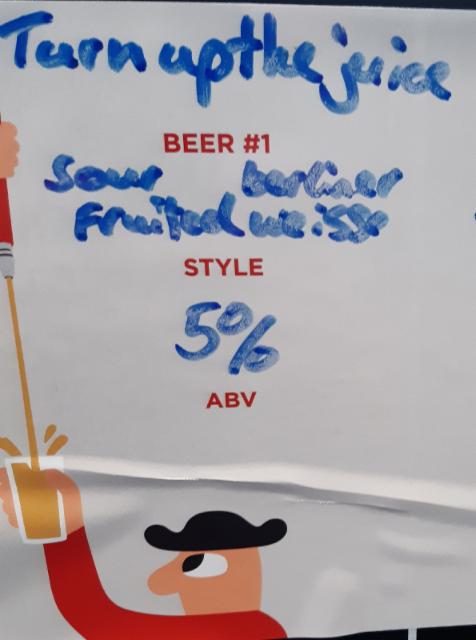 Turn up the juice
BEER #1
Sour berliner
Fruited weisse
STYLE
5%
ABV